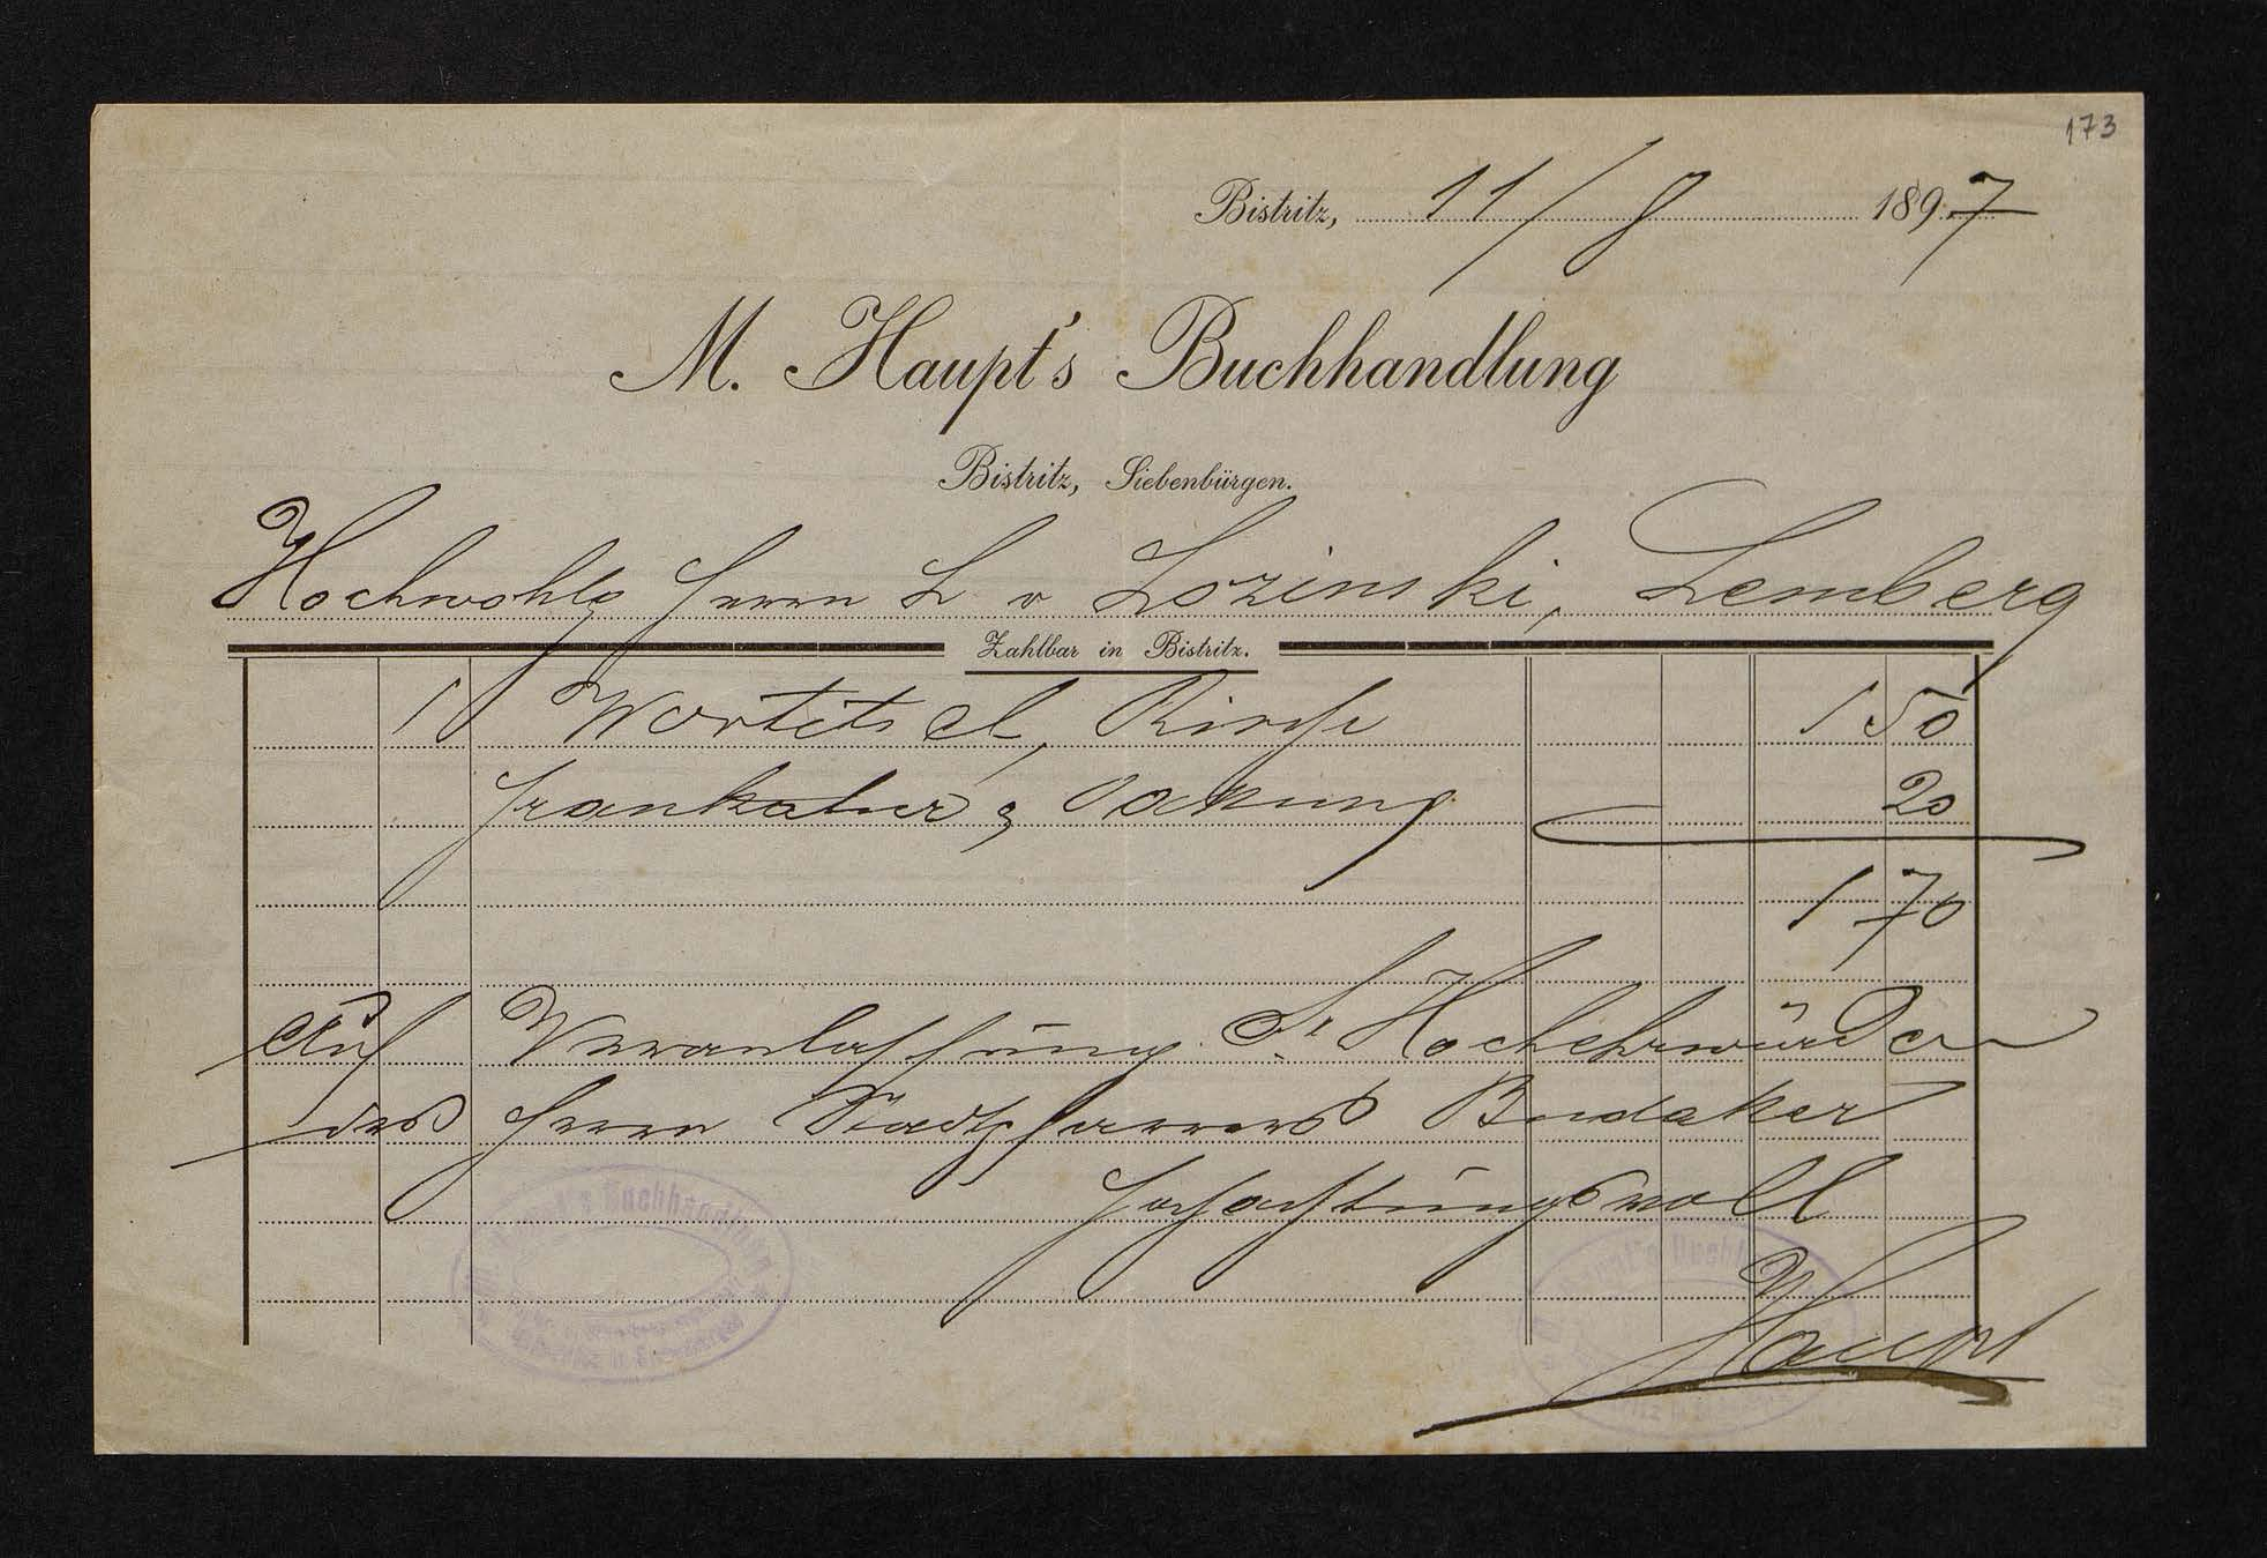 173
Bistritz, 11/8 1897
M. Haupt's Buchhandlung
Bistritz, Siebenbürgen.
Hochwohlg Herrn L v Lozinski, Lemberg
Zahlbar in Bistritz.
1 Wortitsch, Kirche 1 50
Frankatur & Packung 20
1 70
Auf Veranlassung Sr Hochehrwürden
des Herrn Stadtpfarrers Budaker
Hochachtungsvoll
Haupt